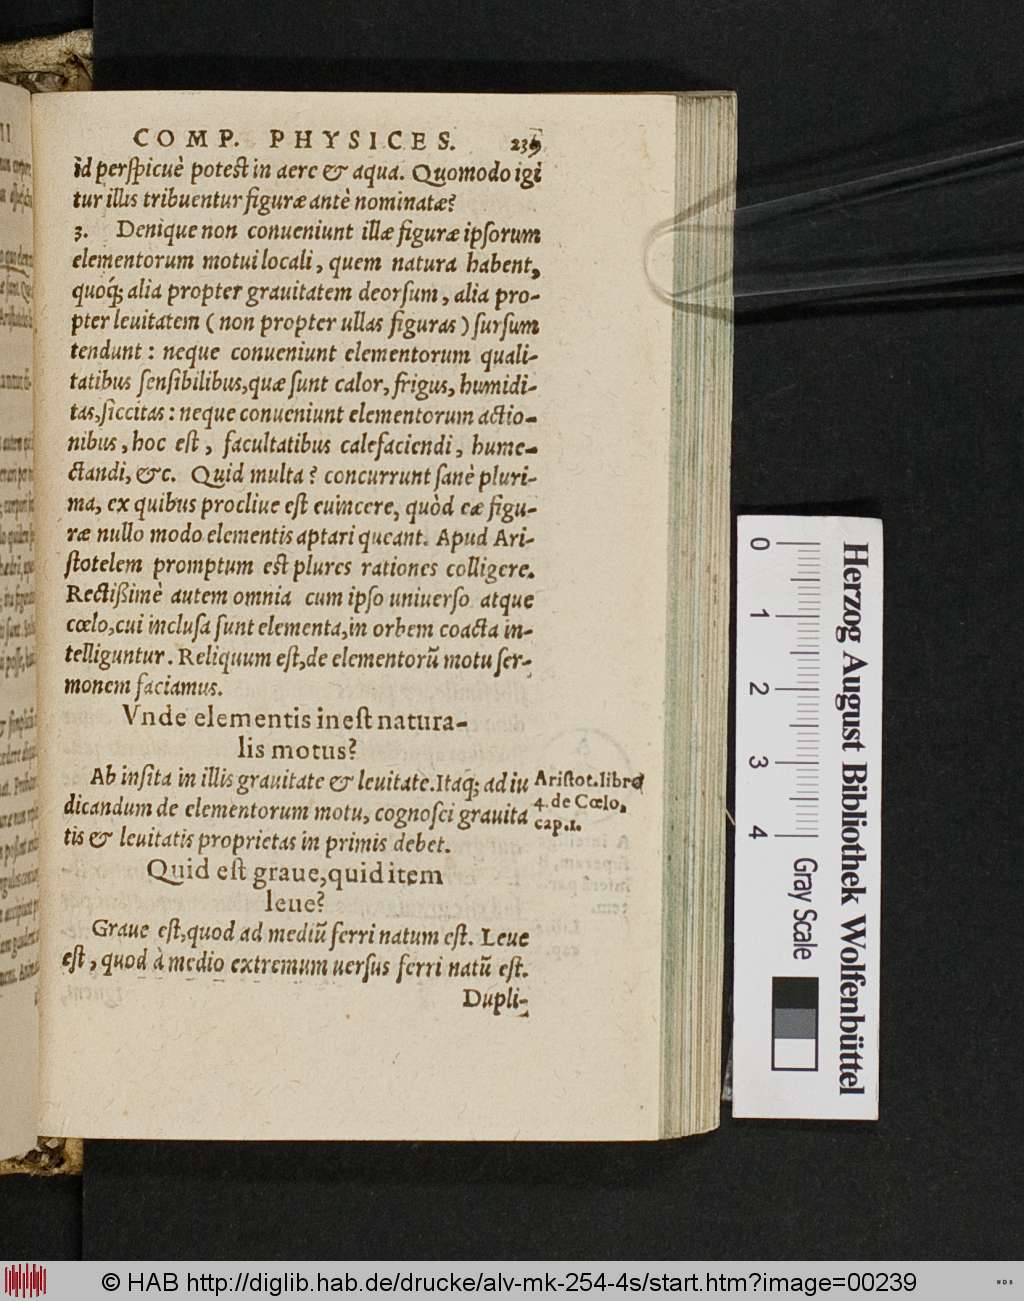 COMP. PHYSICES. 239
id perſpicuè poteſt in aere & aqua. Quomodo igi
tur illis tribuentur figuræ antè nominatæ?
3. Denique non conueniunt illæ figuræ ipſorum
elementorum motui locali, quem natura habent,
quoq́; alia propter grauitatem deorſum, alia pro-
pter leuitatem (non propter ullas figuras) ſurſum
tendunt: neque conueniunt elementorum quali-
tatibus ſenſibilibus, quæ ſunt calor, frigus, humidi-
tas, ſiccitas: neque conueniunt elementorum actio-
nibus, hoc eſt, facultatibus calefaciendi, hume-
ctandi, &c. Quid multa? concurrunt ſanè pluri-
ma, ex quibus procliue eſt euincere, quòd eæ figu-
ræ nullo modo elementis aptari queant. Apud Ari-
ſtotelem promptum eſt plures rationes colligere.
Rectißimè autem omnia cum ipſo uniuerſo atque
cœlo, cui incluſa ſunt elementa, in orbem coacta in-
telliguntur. Reliquum eſt, de elementorũ motu ſer-
monem faciamus.
Vnde elementis ineſt natura-
lis motus?
Ab inſita in illis grauitate & leuitate. Itaq; ad iu
dicandum de elementorum motu, cognoſci grauita
tis & leuitatis proprietas in primis debet.
Ariſtot. libro
4. de Cœlo,
cap. 1.
Quid eſt graue, quid item
leue?
Graue eſt, quod ad mediũ ferri natum eſt. Leue
eſt, quod à medio extremum uerſus ferri natũ eſt.
Dupli-
0 1 2 3 4
Gray Scale
Herzog August Bibliothek Wolfenbüttel
© HAB http://diglib.hab.de/drucke/alv-mk-254-4s/start.htm?image=00239